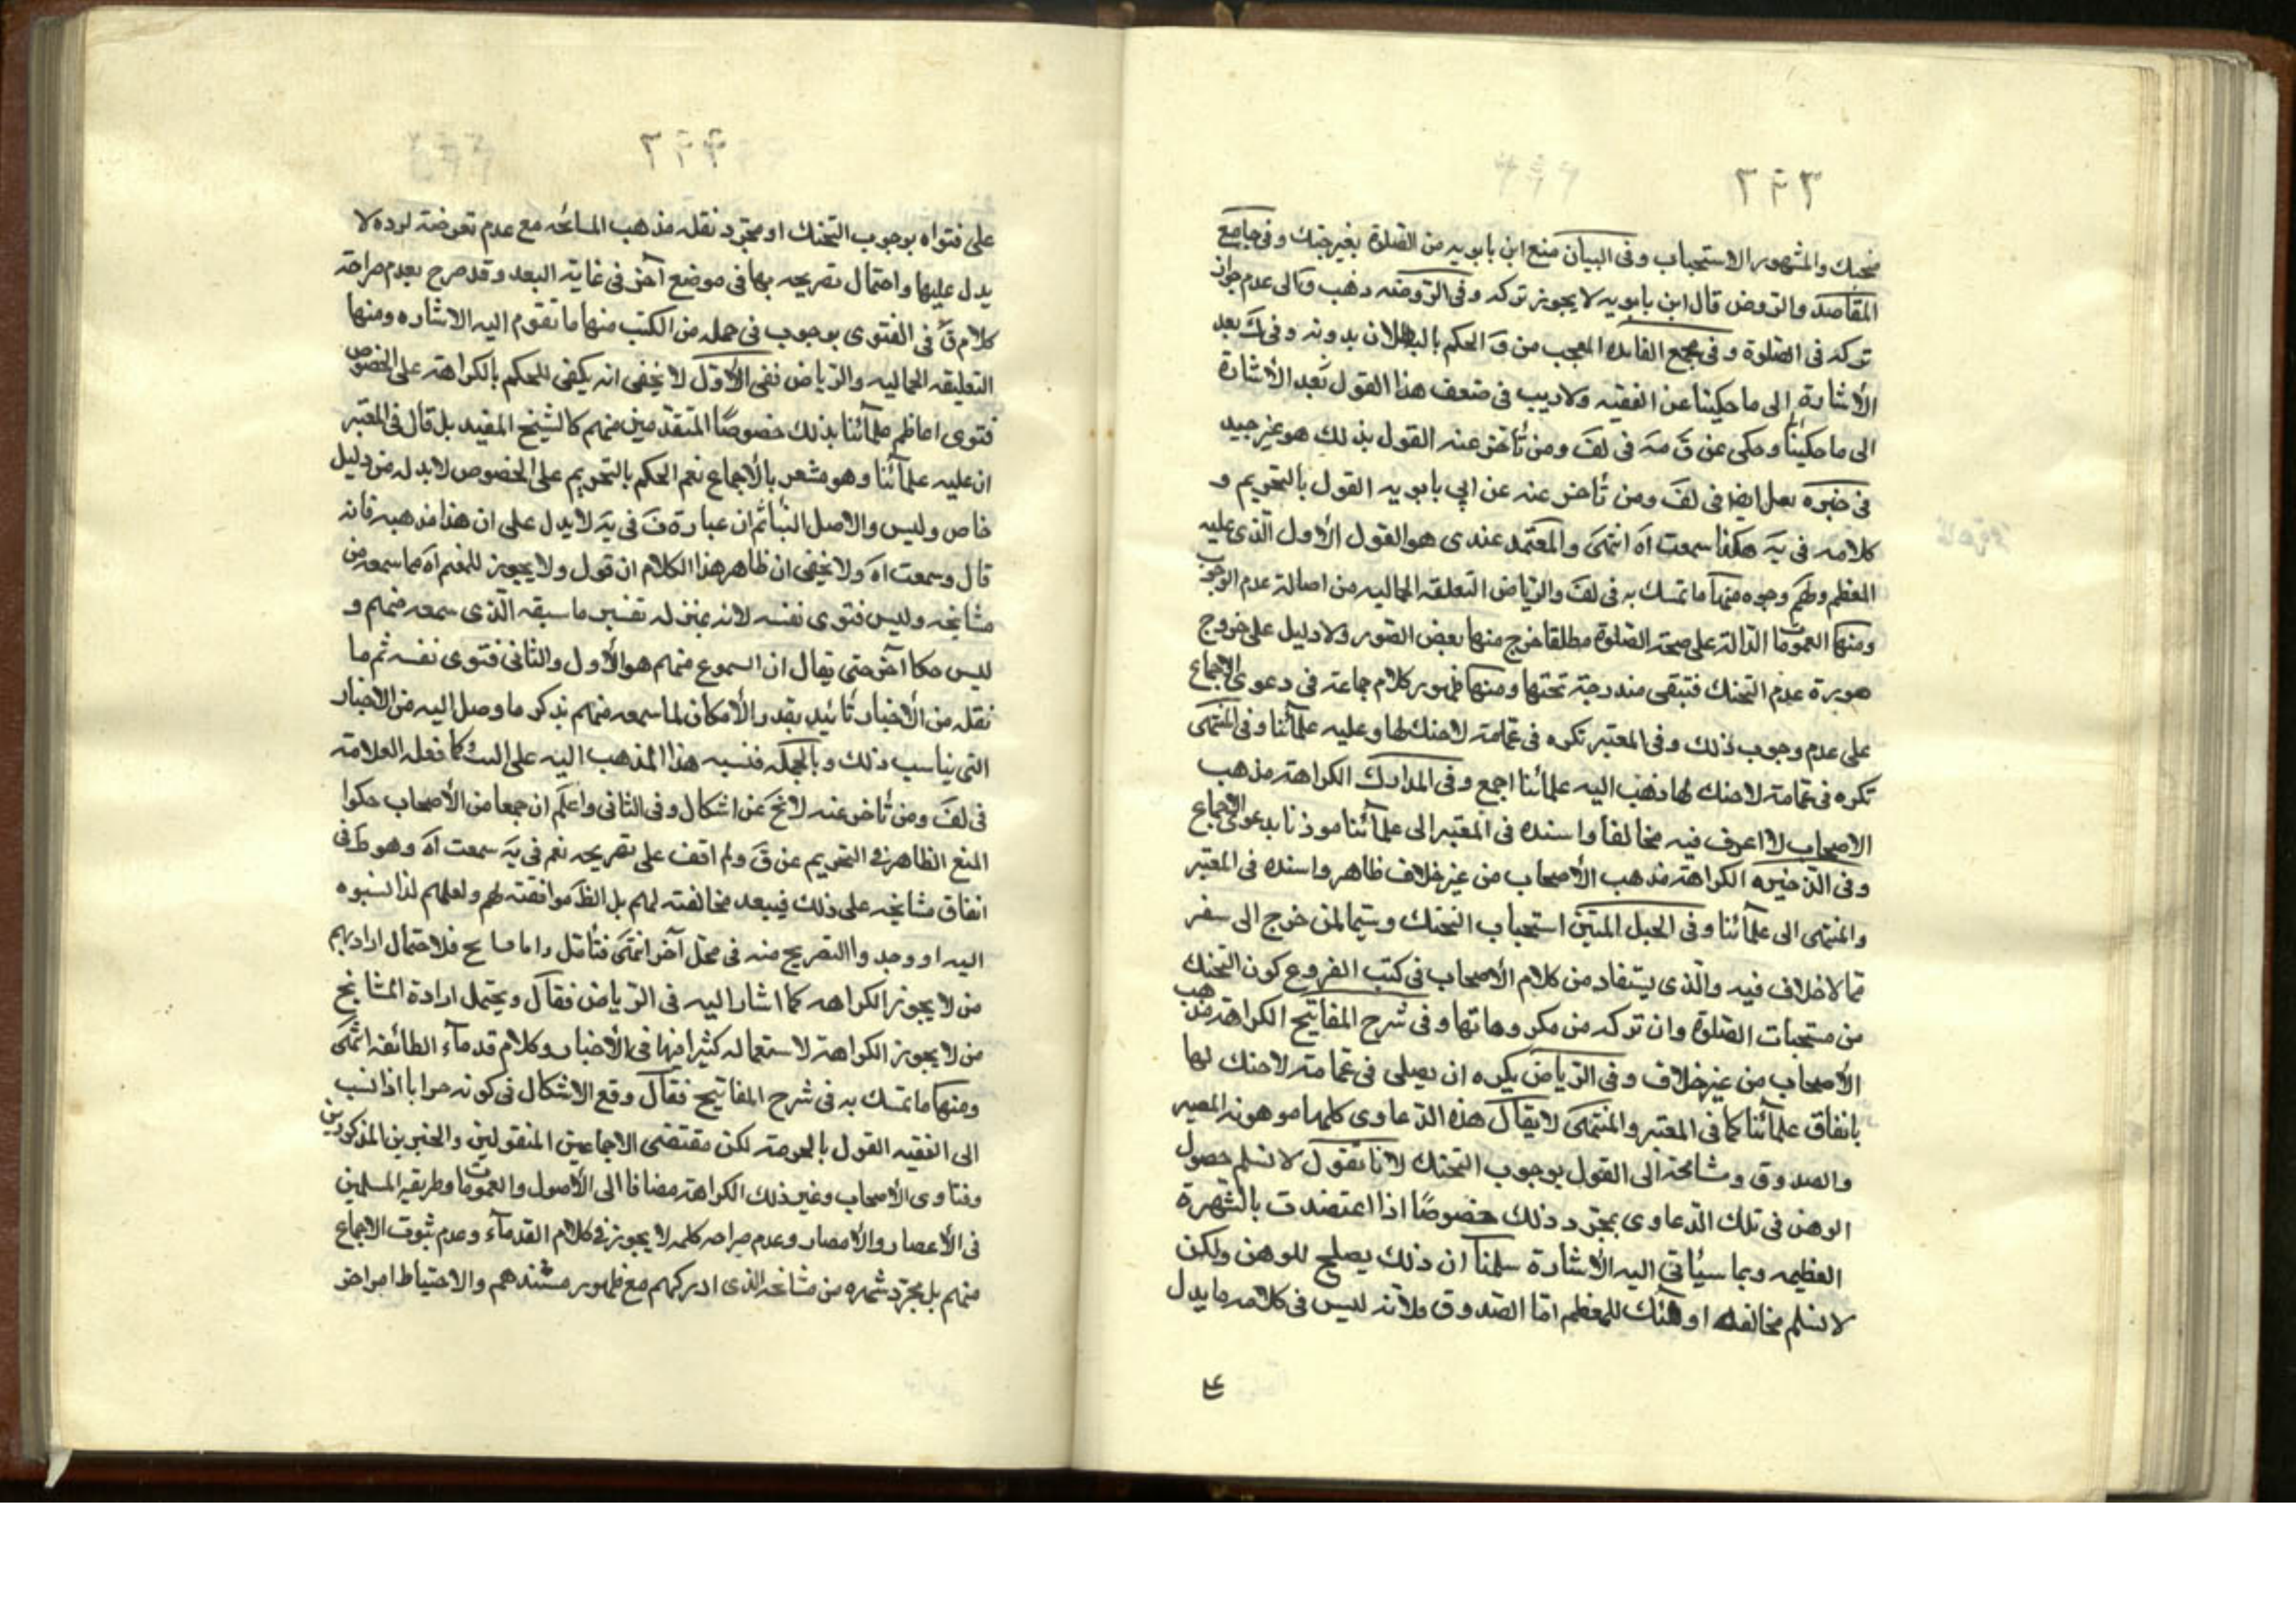 متحنك والمشهور الاستحباب وفى البيان منع ابن بابويه من الصلوة بغير حنك وفى جامع
المقاصد والروض قال ابن بابويه لا يجوز تركه وفى الروضه ذهب ق الى عدم جواز
تركه فى الصلوة وفى مجمع الفايده العجب من ق الحكم بالبطلان بدونه وفى ك بعد
الأشارة الى ما حكينا عن الفقيه ولا ريب فى ضعف هذا القول بعد الأشارة
الى ما حكينا وحكى عن ق مه فى لف ومن تأخر عنه القول بذلك هو غير جيد
فى ايضا فى لف ومن تأخر عنه عن ابى بابويه القول بالتحريم و
كلامه فى يه هكذا سمعت آه انتهى والمعتمد عندى هو القول الأول الذى عليه
المعظم ولهم وجوه منها ما تمسك به فى لف والرياض التعلقه الجماليه من اصالة عدم الوجوب
ومنها العمومات الدالة على صحة الصلوة مطلقا خرج منها بعض الصور ولا دليل على خروج
صورة عدم التحنك فتبقى مندرجة تحتها ومنها ظهور كلام جماعة فى دعوى الاجماع
على عدم وجوب ذلك وفى المعتبر تكره فى عمامة لا حنك لها وعليه علمائنا وفى المنتهى
تكره فى عمامة لا حنك لها ذهب اليه علمائنا اجمع وفى المدارك الكراهة مذهب
الاصحاب لا اعرف فيه مخالفا واسنده فى المعتبر الى علمائنا موذنا بدعوى الاجماع
وفى الذخيره الكراهة مذهب الأصحاب من غير خلاف ظاهر واسنده فى المعتبر
والمنتهى الى علمائنا وفى الحبل المتين استحباب التحنك وسيما لمن خرج الى سفر
مما لا خلاف فيه والذى يستفاد من كلام الأصحاب فى كتب الفروع كون التحنك
من مستحبات الصلوة وان تركه من مكروهاتها وفى شرح المفاتيح الكراهة مذهب
الأصحاب من غير خلاف وفى الرياض يكره ان يصلى فى عمامة لا حنك لها
باتفاق علمائنا كما فى المعتبر والمنتهى لا يقال هذه الدعاوى كلها موهونه بمصير
والصدوق ومشايخه الى القول بوجوب التحنك لانا نقول لا نسلم حصول
الوهن فى تلك الدعاوى بمجرد ذلك خصوصًا اذا اعتضدت بالشهرة
العظيمه وبما سيأتى اليه الأشارة سلمنا ان ذلك يصلح للوهن ولكن
لا نسلم مخالفة اولئك للمعظم اما الصدوق فلانه ليس فى كلامه ما يدل
على فتواه بوجوب التحنك او مجرد نقله مذهب المشايخه مع عدم تعرضه لرده لا
يدل عليها واحتمال تصريحه بها فى موضع آخر فى غاية البعد وقد صرح بعدم صراحة
كلام ق فى الفتوى بوجوب فى جمله من الكتب منها ما تقدم اليه الاشاره ومنها
التعليقه الجماليه والرياض ففى الأول لا يخفى انه يكفى للحكم بالكراهة على الخصوص
فتوى اعاظم علمائنا بذلك خصوصًا المتقدمين منهم كالشيخ المفيد بل قال فى المعتبر
ان عليه علمائنا وهو مشعر بالأجماع نعم الحكم بالتحريم على الخصوص لابد له من دليل
خاص وليس والاصل ثم ان عبارة ق فى يه لا يدل على ان هذا مذهبه فانه
قال وسمعت آه ولا يخفى ان ظاهر هذا الكلام ان قول ولا يجوز للمعتم آه مما سمعه من
مشايخه وليس فتوى نفسه لانه بمنزله تفسير ما سبقه الذى سمعه منهم و
ليس حكما آخر حتى يقال ان السموع منهم هو الأول والثانى فتوى نفسه ثم ما
نقله من الأخبار تأئيد بقدر الأمكان لما سمعه منهم بذكر ما وصل اليه من الاخبار
التى يناسب ذلك وبالجمله فنسبه هذا المذهب اليه على كما فعله العلامة
فى لف ومن تأخر عنه لا يخ عن اشكال وفى الثانى واعلم ان جمعا من الأصحاب حكوا
المنع الظاهر فى التحريم عن ق ولم اقف على تصريحه نعم فى يه سمعت آه وهو ظ فى
اتفاق مشايخه على ذلك فيبعد مخالفته لهم بل الظ موافقته لهم ولعلهم لذا نسبوه
اليه او وجدوا التصريح منه فى محل آخر انتهى فتأمل واما فلاحتمال ارادتهم
من لا يجوز الكراهه كما اشار اليه فى الرياض فقال ويحتمل ارادة المشايخ
من لا يجوز الكراهة لاستعماله كثيرا فيها فى الأخبار وكلام قدماء الطائفة انتهى
ومنها ما تمسك به فى شرح المفاتيح فقال وقع الاشكال فى كونه حراما اذا نسب
الى الفقيه القول بالحرمة لكن مقتضى الاجماعين المنقولين والخبرين المذكورين
وفتاوى الأصحاب وغير ذلك الكراهة مضافا الى الأصول والعمومات وطريقه المسلمين
فى الأعصار والأمصار وعدم صراحه كلمه لا يجوز فى كلام القدماء وعدم ثبوت الاجماع
منهم بل مجرد شهره من مشايخه الذى ادركهم مع ظهور مستندهم والاحتياط امر اخر